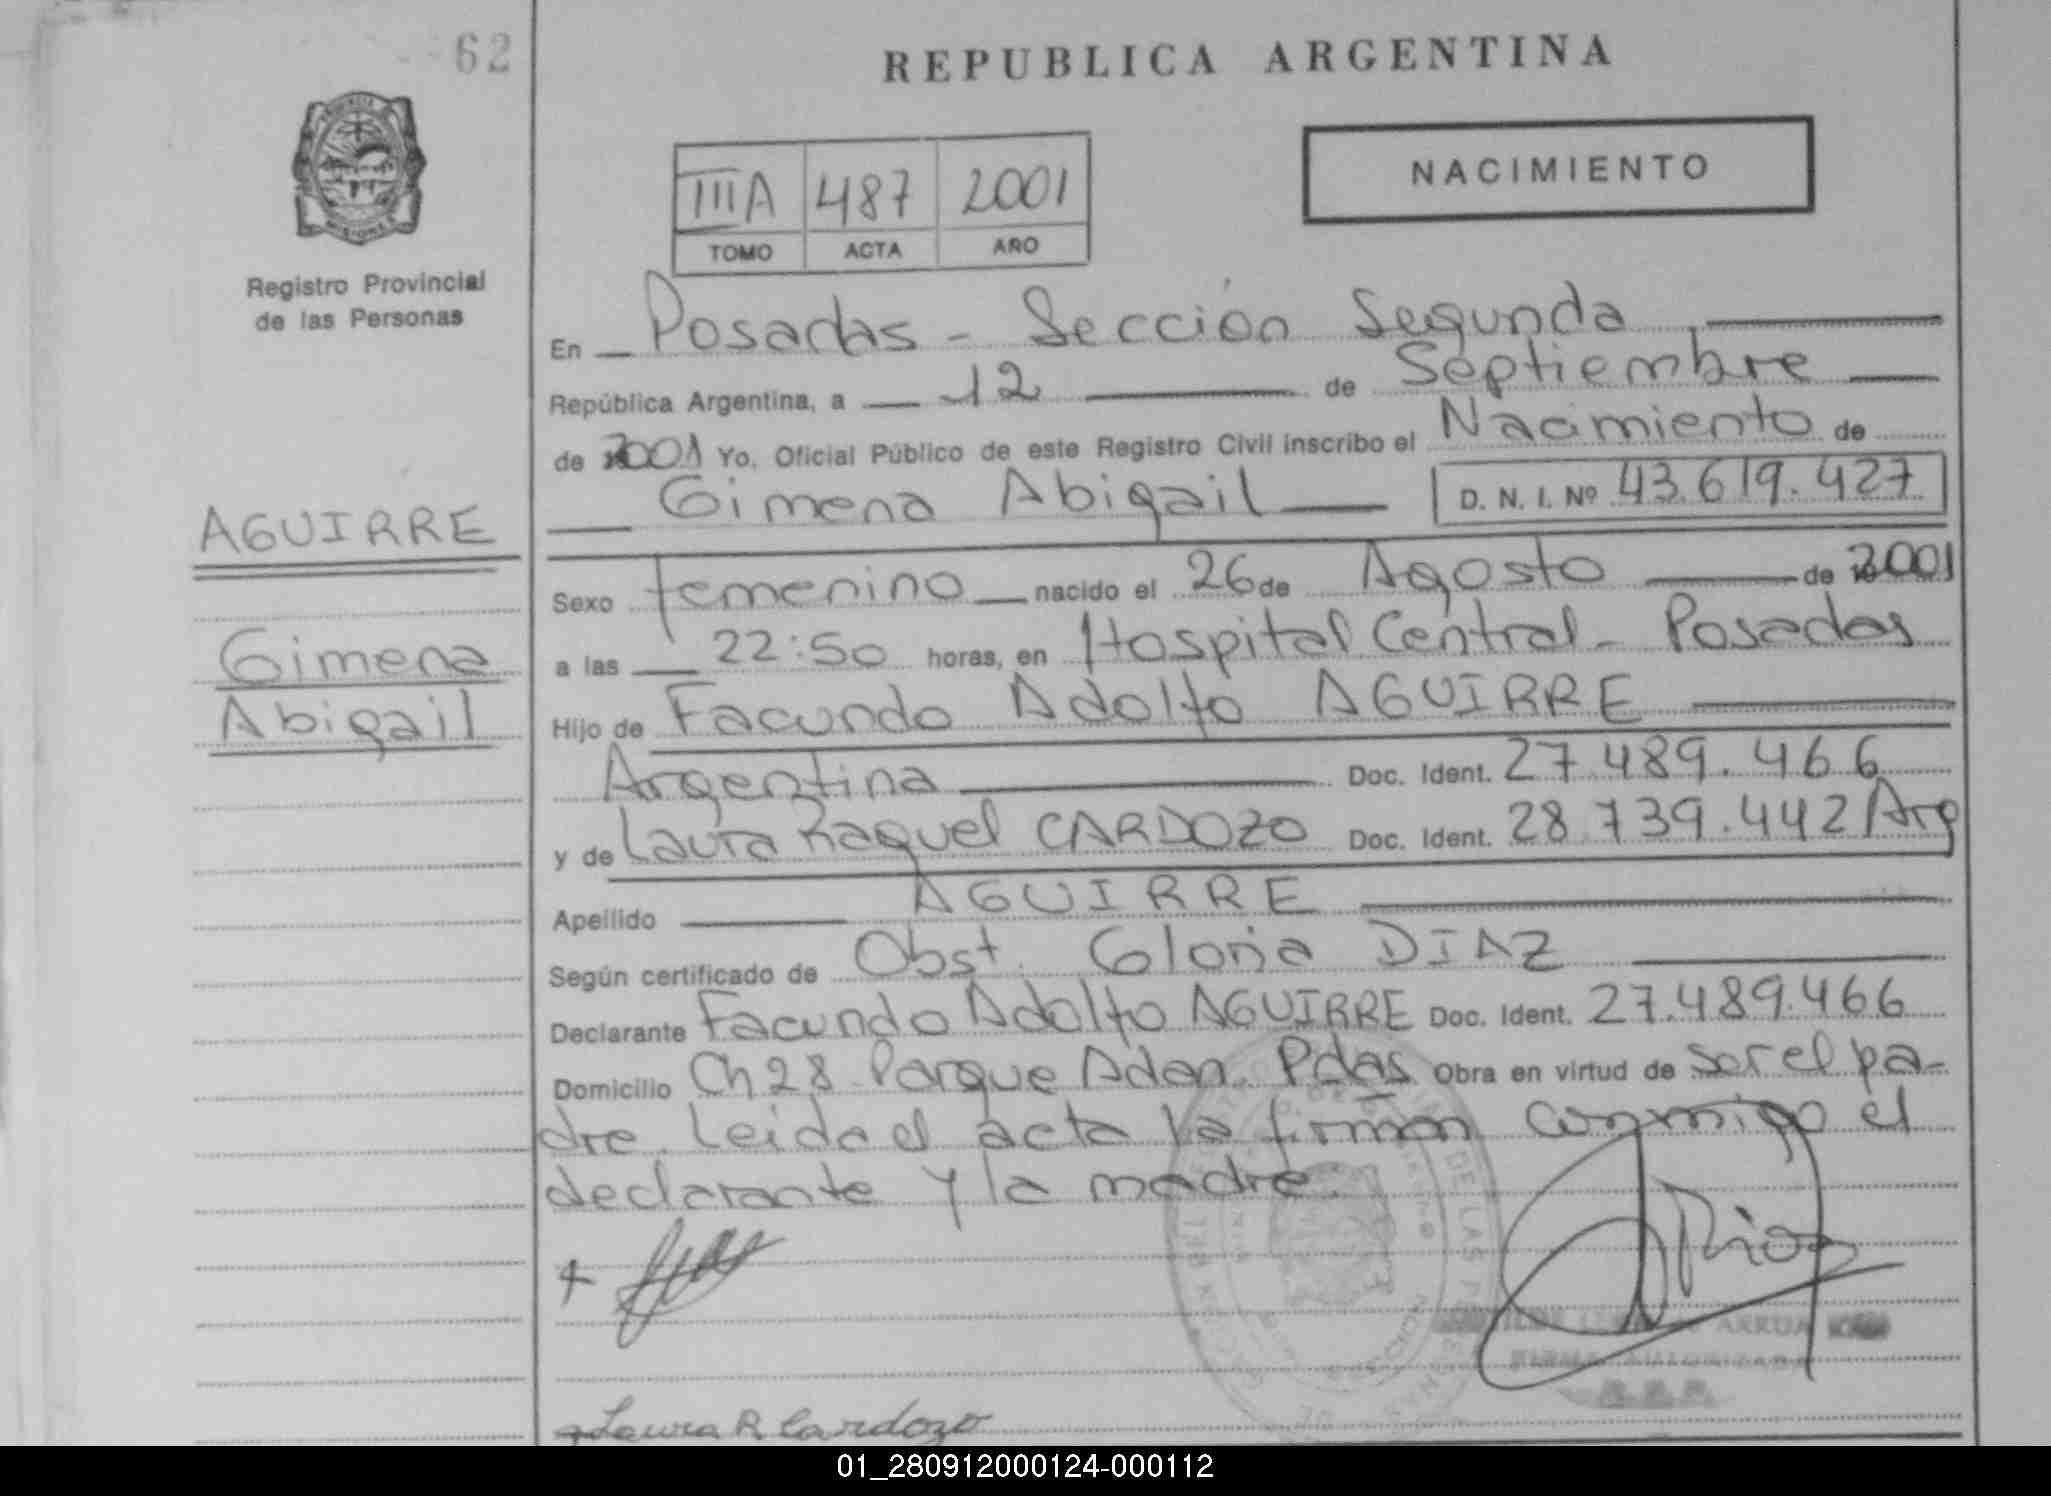 62
REPUBLICA ARGENTINA
NACIMIENTO
IIIA 487 2001
TOMO ACTA AÑO
Registro Provincial
de las Personas
En Posadas - Sección Segunda
República Argentina, a 12 de Septiembre
de 2001 Yo, Oficial Público de este Registro Civil inscribo el Nacimiento de
Gimena Abigail D. N. I. Nº 43.619.427
AGUIRRE
Gimena
Abigail
Sexo femenino nacido el 26 de Agosto de 2001
a las 22:50 horas, en Hospital Central - Posadas
Hijo de Facundo Adolfo AGUIRRE
Argentina Doc. Ident. 27.489.466
y de Laura Raquel CARDOZO Doc. Ident. 28.739.442 Arg
Apellido AGUIRRE
Según certificado de Obst. Gloria DIAZ
Declarante Facundo Adolfo AGUIRRE Doc. Ident. 27.489.466
Domicilio Ch 28 Parque Adan. Pdas Obra en virtud de ser el pa-
dre. Leida el acta la firman conmigo el
declarante y la madre.
Rios
ARRUA
FIRMA AUTORIZADA
Laura R Cardozo
01_280912000124-000112